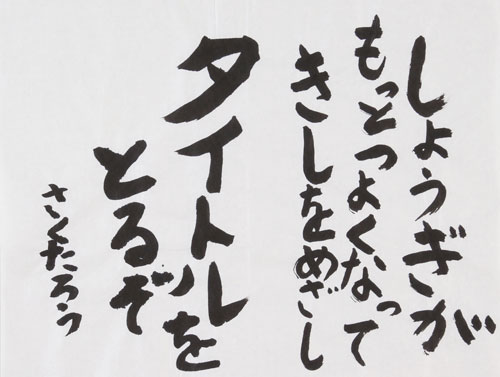 しょうぎが
もっとつよくなって
きしをめざし
タイトルを
とるぞ
さくたろう